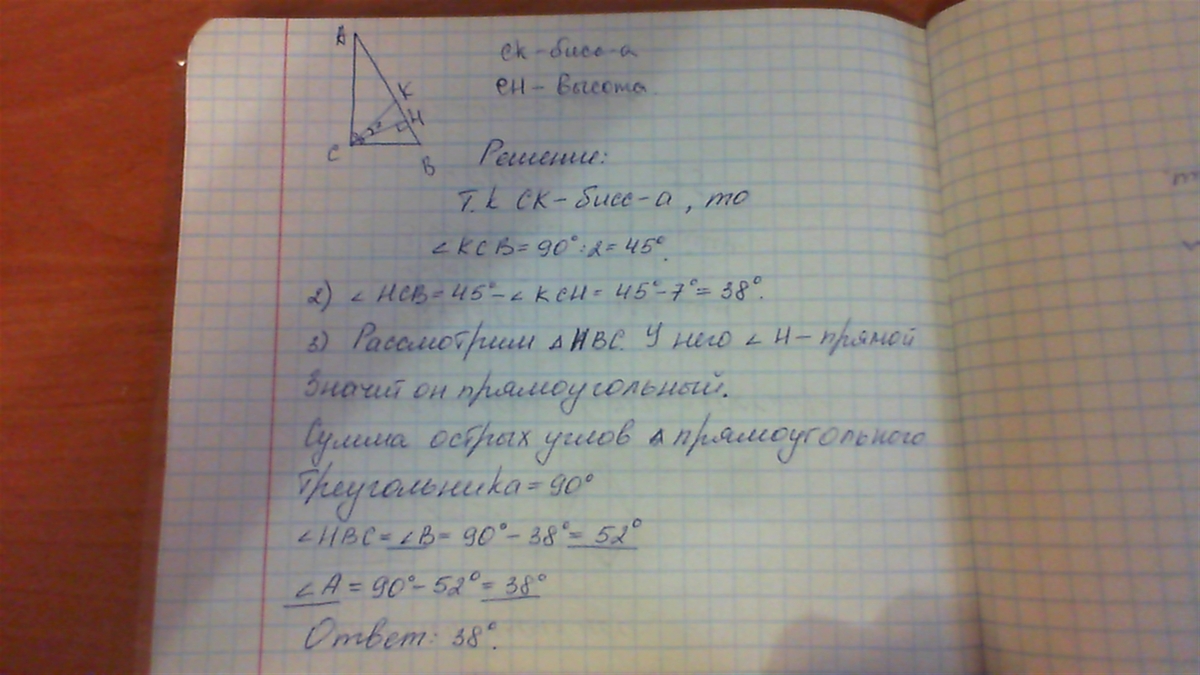 A
K
H
C
B
7°
СК - бисс-а
СН - Высота
Решение:
Т.к СК - бисс-а, то
∠KCB = 90° : 2 = 45°.
2) ∠HCB = 45° - ∠KCH = 45° - 7° = 38°.
3) Рассмотрим △HBC. У него ∠H - прямой
Значит он прямоугольный.
Сумма острых углов △ прямоугольного
треугольника = 90°
∠HBC = ∠B = 90° - 38° = 52°
∠A = 90° - 52° = 38°
Ответ: 38°.